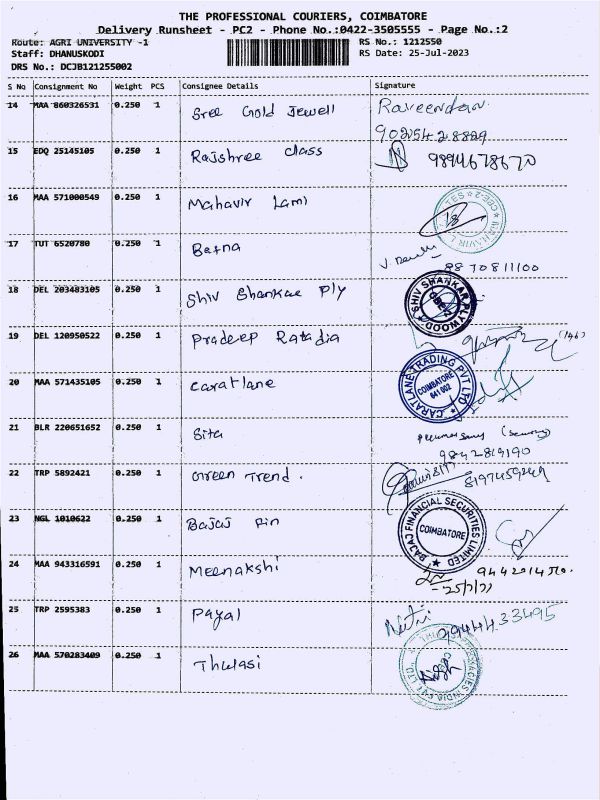 THE PROFESSIONAL COURIERS, COIMBATORE
Delivery Runsheet - PC2 - Phone No.:0422-3505555 - Page No.:2
Route: AGRI UNIVERSITY -1 RS No.: 1212550
Staff: DHANUSKODI RS Date: 25-Jul-2023
DRS No.: DCJB121255002
S No Consignment No Weight PCS Consignee Details Signature
14 MAA 860326531 0.250 1 Sree Gold Jewell Raveendan
15 EDQ 25145105 0.250 1 Rajshree class 9894678670
16 MAA 571000549 0.250 1 Mahavir Lami
17 TUT 6520780 0.250 1 Batna
9870811100
18 DEL 203483105 0.250 1 Shiv Shankar Ply SHIV SHANKAR PLYWOOD CBE-2
19 DEL 120950522 0.250 1 Pradeep Ratadia
20 MAA 571435105 0.250 1 Caratlane CARATLANE TRADING PVT LTD COIMBATORE 641 002
21 BLR 220651652 0.250 1 Sita (Security)
9842819190
22 TRP 5892421 0.250 1 Green Trend.
23 NGL 1010622 0.250 1 Bajaj Fin BAJAJ FINANCIAL SECURITIES LIMITED COIMBATORE
24 MAA 943316591 0.250 1 Meenakshi
25 TRP 2595383 0.250 1 Payal
9944433495
26 MAA 570283409 0.250 1 Thulasi